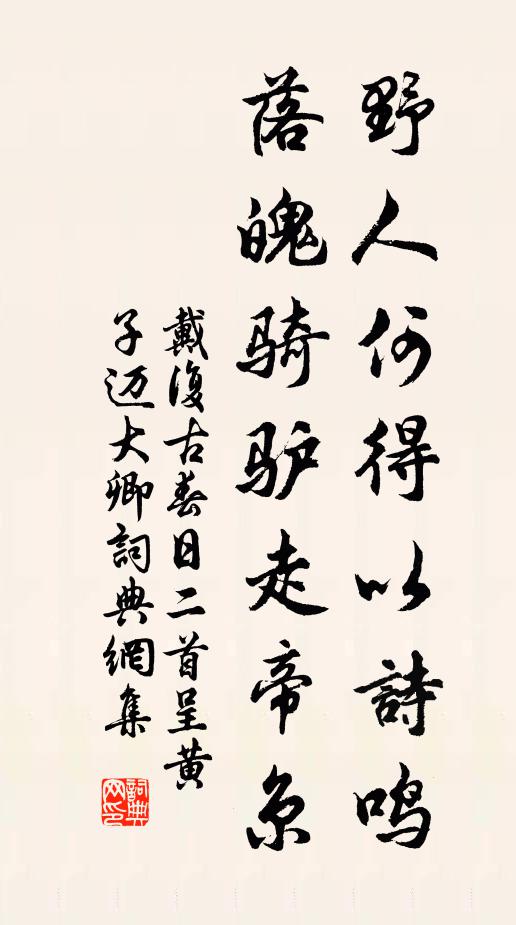 野人何得以詩鸣
落魄骑驴走帝京
戴復古春日二首呈黄
子迈大卿詞典網集
詞典
网印